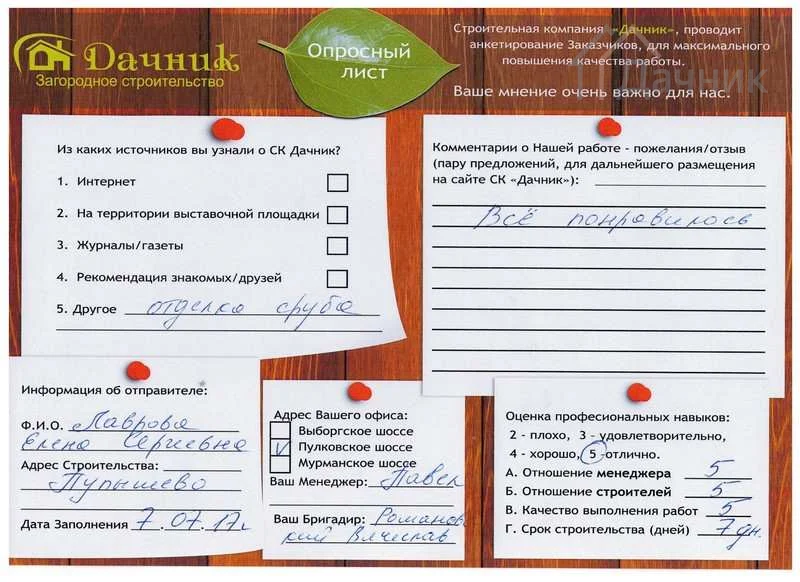 Дачник
Загородное строительство
Опросный
лист
Строительная компания «Дачник», проводит
анкетирование Заказчиков, для максимального
повышения качества работы.
Дачник
Ваше мнение очень важно для нас.
Из каких источников вы узнали о СК Дачник?
1. Интернет
2. На территории выставочной площадки
3. Журналы/газеты
4. Рекомендация знакомых/друзей
5. Другое отделка сруба
Комментарии о Нашей работе - пожелания/отзыв
(пару предложений, для дальнейшего размещения
на сайте СК «Дачник»):
Всё понравилось
Информация об отправителе:
Ф.И.О. Лаврова
Елена Сергиевна
Адрес Строительства:
Пупышево
Дата Заполнения 7.07.17г.
Адрес Вашего офиса:
Выборгское шоссе
V Пулковское шоссе
Мурманское шоссе
Ваш Менеджер: Павел
Ваш Бригадир: Романов
ский Вячеслав
Оценка професиональных навыков:
2 - плохо, 3 - удовлетворительно,
4 - хорошо, 5 -отлично.
А. Отношение менеджера 5
Б. Отношение строителей 5
В. Качество выполнения работ 5
Г. Срок строительства (дней) 7 дн.